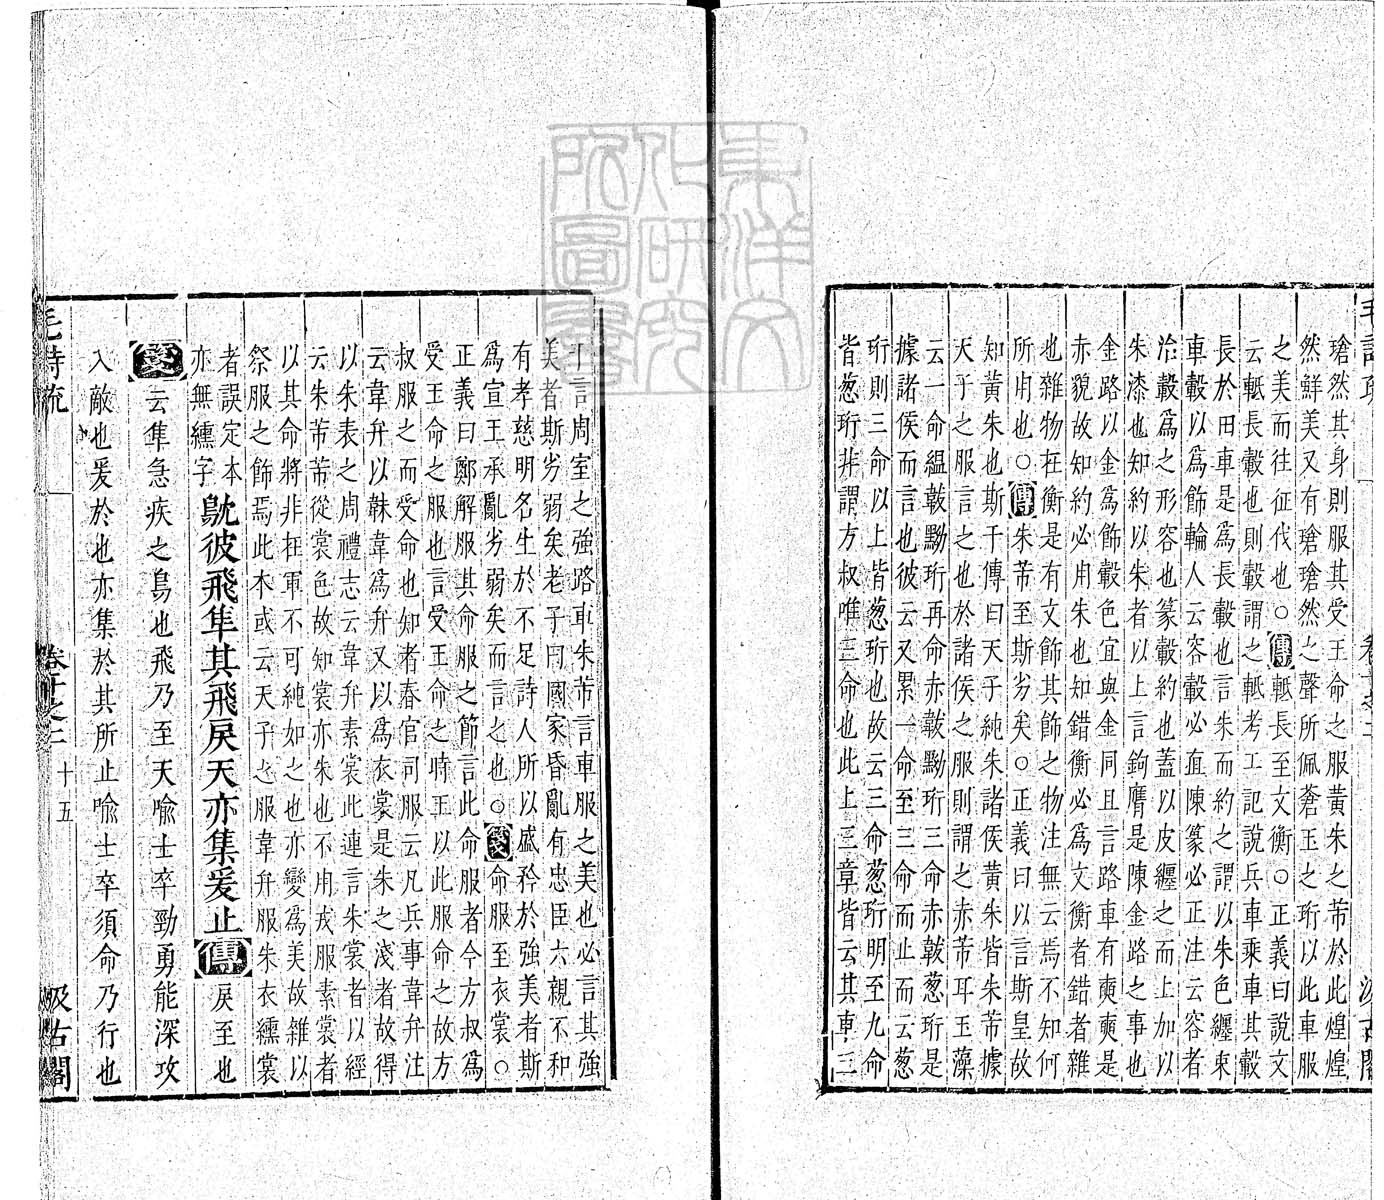 瑲然其身則服其受王命之服黃朱之芾於此煌煌
然鮮美又有瑲瑲然之聲所佩蒼玉之珩以此車服
之美而往征伐也○傳軧長至文衡○正義曰說文
云軧長轂也則轂謂之軧考工記說兵車乘車其轂
長於田車是爲長轂也言朱而約之謂以朱色纏束
車轂以爲飾輪人云容轂必直陳篆必正注云容者
治轂爲之形容也篆轂約也蓋以皮纏之而上加以
朱漆也知約以朱者以上言鉤膺是陳金路之事也
金路以金爲飾轂色宜與金同且言路車有奭奭是
赤貌故知約必用朱也知錯衡必爲文衡者錯者雜
也雜物在衡是有文飾其飾之物注無云焉不知何
所用也○傳朱芾至斯劣矣○正義曰以言斯皇故
知黃朱也斯干傳曰天子純朱諸侯黃朱皆朱芾據
天子之服言之也於諸侯之服則謂之赤芾耳玉藻
云一命縕韍黝珩再命赤韍黝珩三命赤韍葱珩是
據諸侯而言也彼云又累一命至三命而止而云葱
珩則三命以上皆葱珩也故云三命葱珩明至九命
皆葱珩非謂方叔唯三命也此上三章皆云其車三
千言周室之強路車朱芾言車服之美也必言其強
美者斯劣弱矣老子曰國家昏亂有忠臣六親不和
有孝慈明名生於不足詩人所以盛矜於強美者斯
爲宣王承亂劣弱矣而言之也○箋命服至衣裳○
正義曰鄭解服其命服之節言此命服者今方叔爲
受王命之服也言受王命之時王以此服命之故方
叔服之而受命也知者春官司服云凡兵事韋弁注
云韋弁以韎韋爲弁又以爲衣裳是朱之淺者故得
以朱表之周禮志云韋弁素裳此連言朱裳者以經
云朱芾芾從裳色故知裳亦朱也不用戎服素裳者
以其命將非在軍不可純如之也亦變爲美故雜以
祭服之飾焉此本或云天子之服韋弁服朱衣纁裳
者誤定本
亦無纁字
鴥彼飛隼其飛戾天亦集爰止傳戾至也
箋云隼急疾之鳥也飛乃至天喻士卒勁勇能深攻
入敵也爰於也亦集於其所止喻士卒須命乃行也
毛詩疏 卷十之二 十五 汲古閣